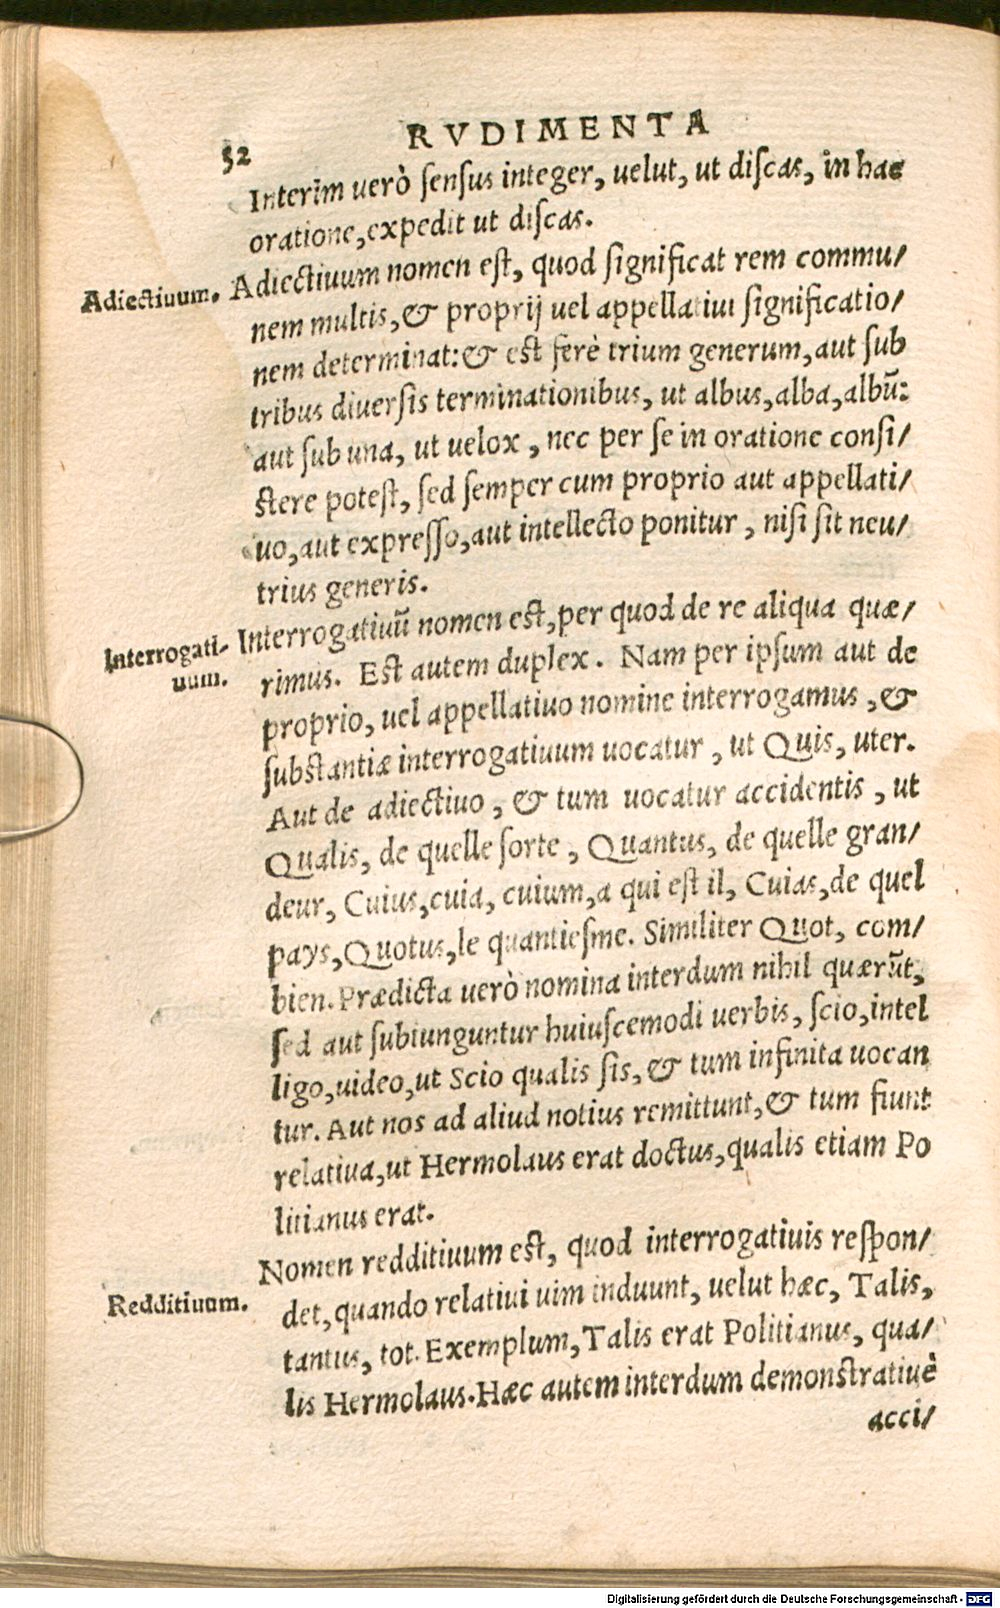 RVDIMENTA
52
Interim uerò ſenſus integer, uelut, ut diſcas, in hac
oratione, expedit ut diſcas.
Adiectiuum. Adiectiuum nomen eſt, quod ſignificat rem commu/
nem multis, & proprij uel appellatiui ſignificatio/
nem determinat: & eſt ferè trium generum, aut ſub
tribus diuerſis terminationibus, ut albus, alba, albũ:
aut ſub una, ut uelox, nec per ſe in oratione conſi/
ſtere poteſt, ſed ſemper cum proprio aut appellati/
uo, aut expreſſo, aut intellecto ponitur, niſi ſit neu/
trius generis.
Interrogati- Interrogatiuũ nomen eſt, per quod de re aliqua quæ/
uum. rimus. Eſt autem duplex. Nam per ipſum aut de
proprio, uel appellatiuo nomine interrogamus, &
ſubſtantiæ interrogatiuum uocatur, ut Quis, uter.
Aut de adiectiuo, & tum uocatur accidentis, ut
Qualis, de quelle ſorte, Quantus, de quelle gran/
deur, Cuius, cuia, cuium, a qui eſt il, Cuias, de quel
pays, Quotus, le quantieſme. Similiter Quot, com/
bien. Prædicta uerò nomina interdum nihil quærũt,
ſed aut ſubiunguntur huiuſcemodi uerbis, ſcio, intel
ligo, uideo, ut Scio qualis ſis, & tum infinita uocan
tur. Aut nos ad aliud notius remittunt, & tum fiunt
relatiua, ut Hermolaus erat doctus, qualis etiam Po
litianus erat.
Nomen redditiuum eſt, quod interrogatiuis reſpon/
Redditiuum. det, quando relatiui uim induunt, uelut hæc, Talis,
tantus, tot. Exemplum, Talis erat Politianus, qua/
lis Hermolaus. Hæc autem interdum demonſtratiuè
acci/
Digitalisierung gefördert durch die Deutsche Forschungsgemeinschaft - DFG